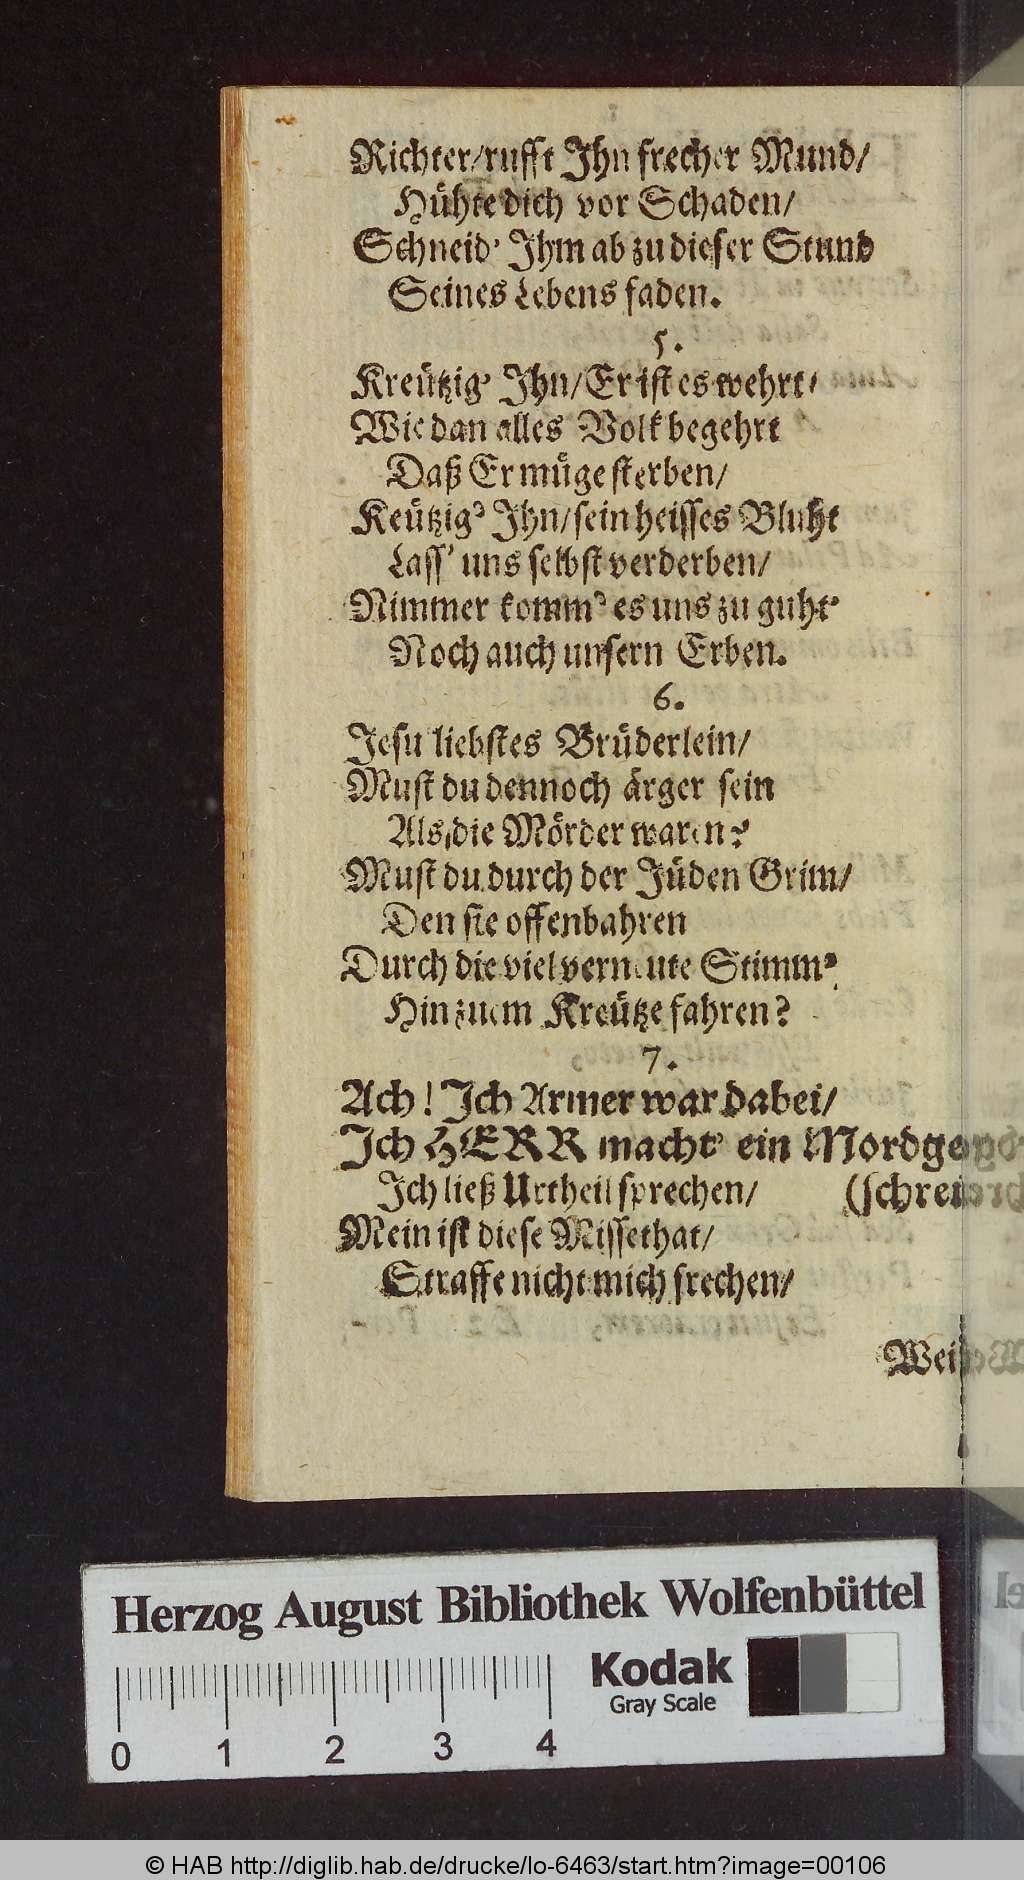 Richter/rufft Ihn frecher Mund/
Hühte dich vor Schaden/
Schneid' Ihm ab zu dieser Stund
Seines Lebens faden.
5.
Kreützig' Ihn/Er ist es wehrt/
Wie dan alles Volk begehrt
Daß Er müge sterben/
Keützig' Ihn/sein heisses Bluht
Lass' uns selbst verderben/
Nimmer komm' es uns zu guht'
Noch auch unsern Erben.
6.
Jesu liebstes Brüderlein/
Must du dennoch ärger sein
Als die Mörder waren?
Must du durch der Jüden Grim/
Den sie offenbahren
Durch die viel verneute Stimm'
Hin zuem Kreütze fahren?
7.
Ach! Ich Armer war dabei/
Ich HERR macht' ein Mordge
Ich ließ Urtheil sprechen/ (schrei
Mein ist diese Missethat/
Straffe nicht mich frechen/
Wei
Herzog August Bibliothek Wolfenbüttel
Kodak
Gray Scale
0 1 2 3 4
© HAB http://diglib.hab.de/drucke/lo-6463/start.htm?image=00106